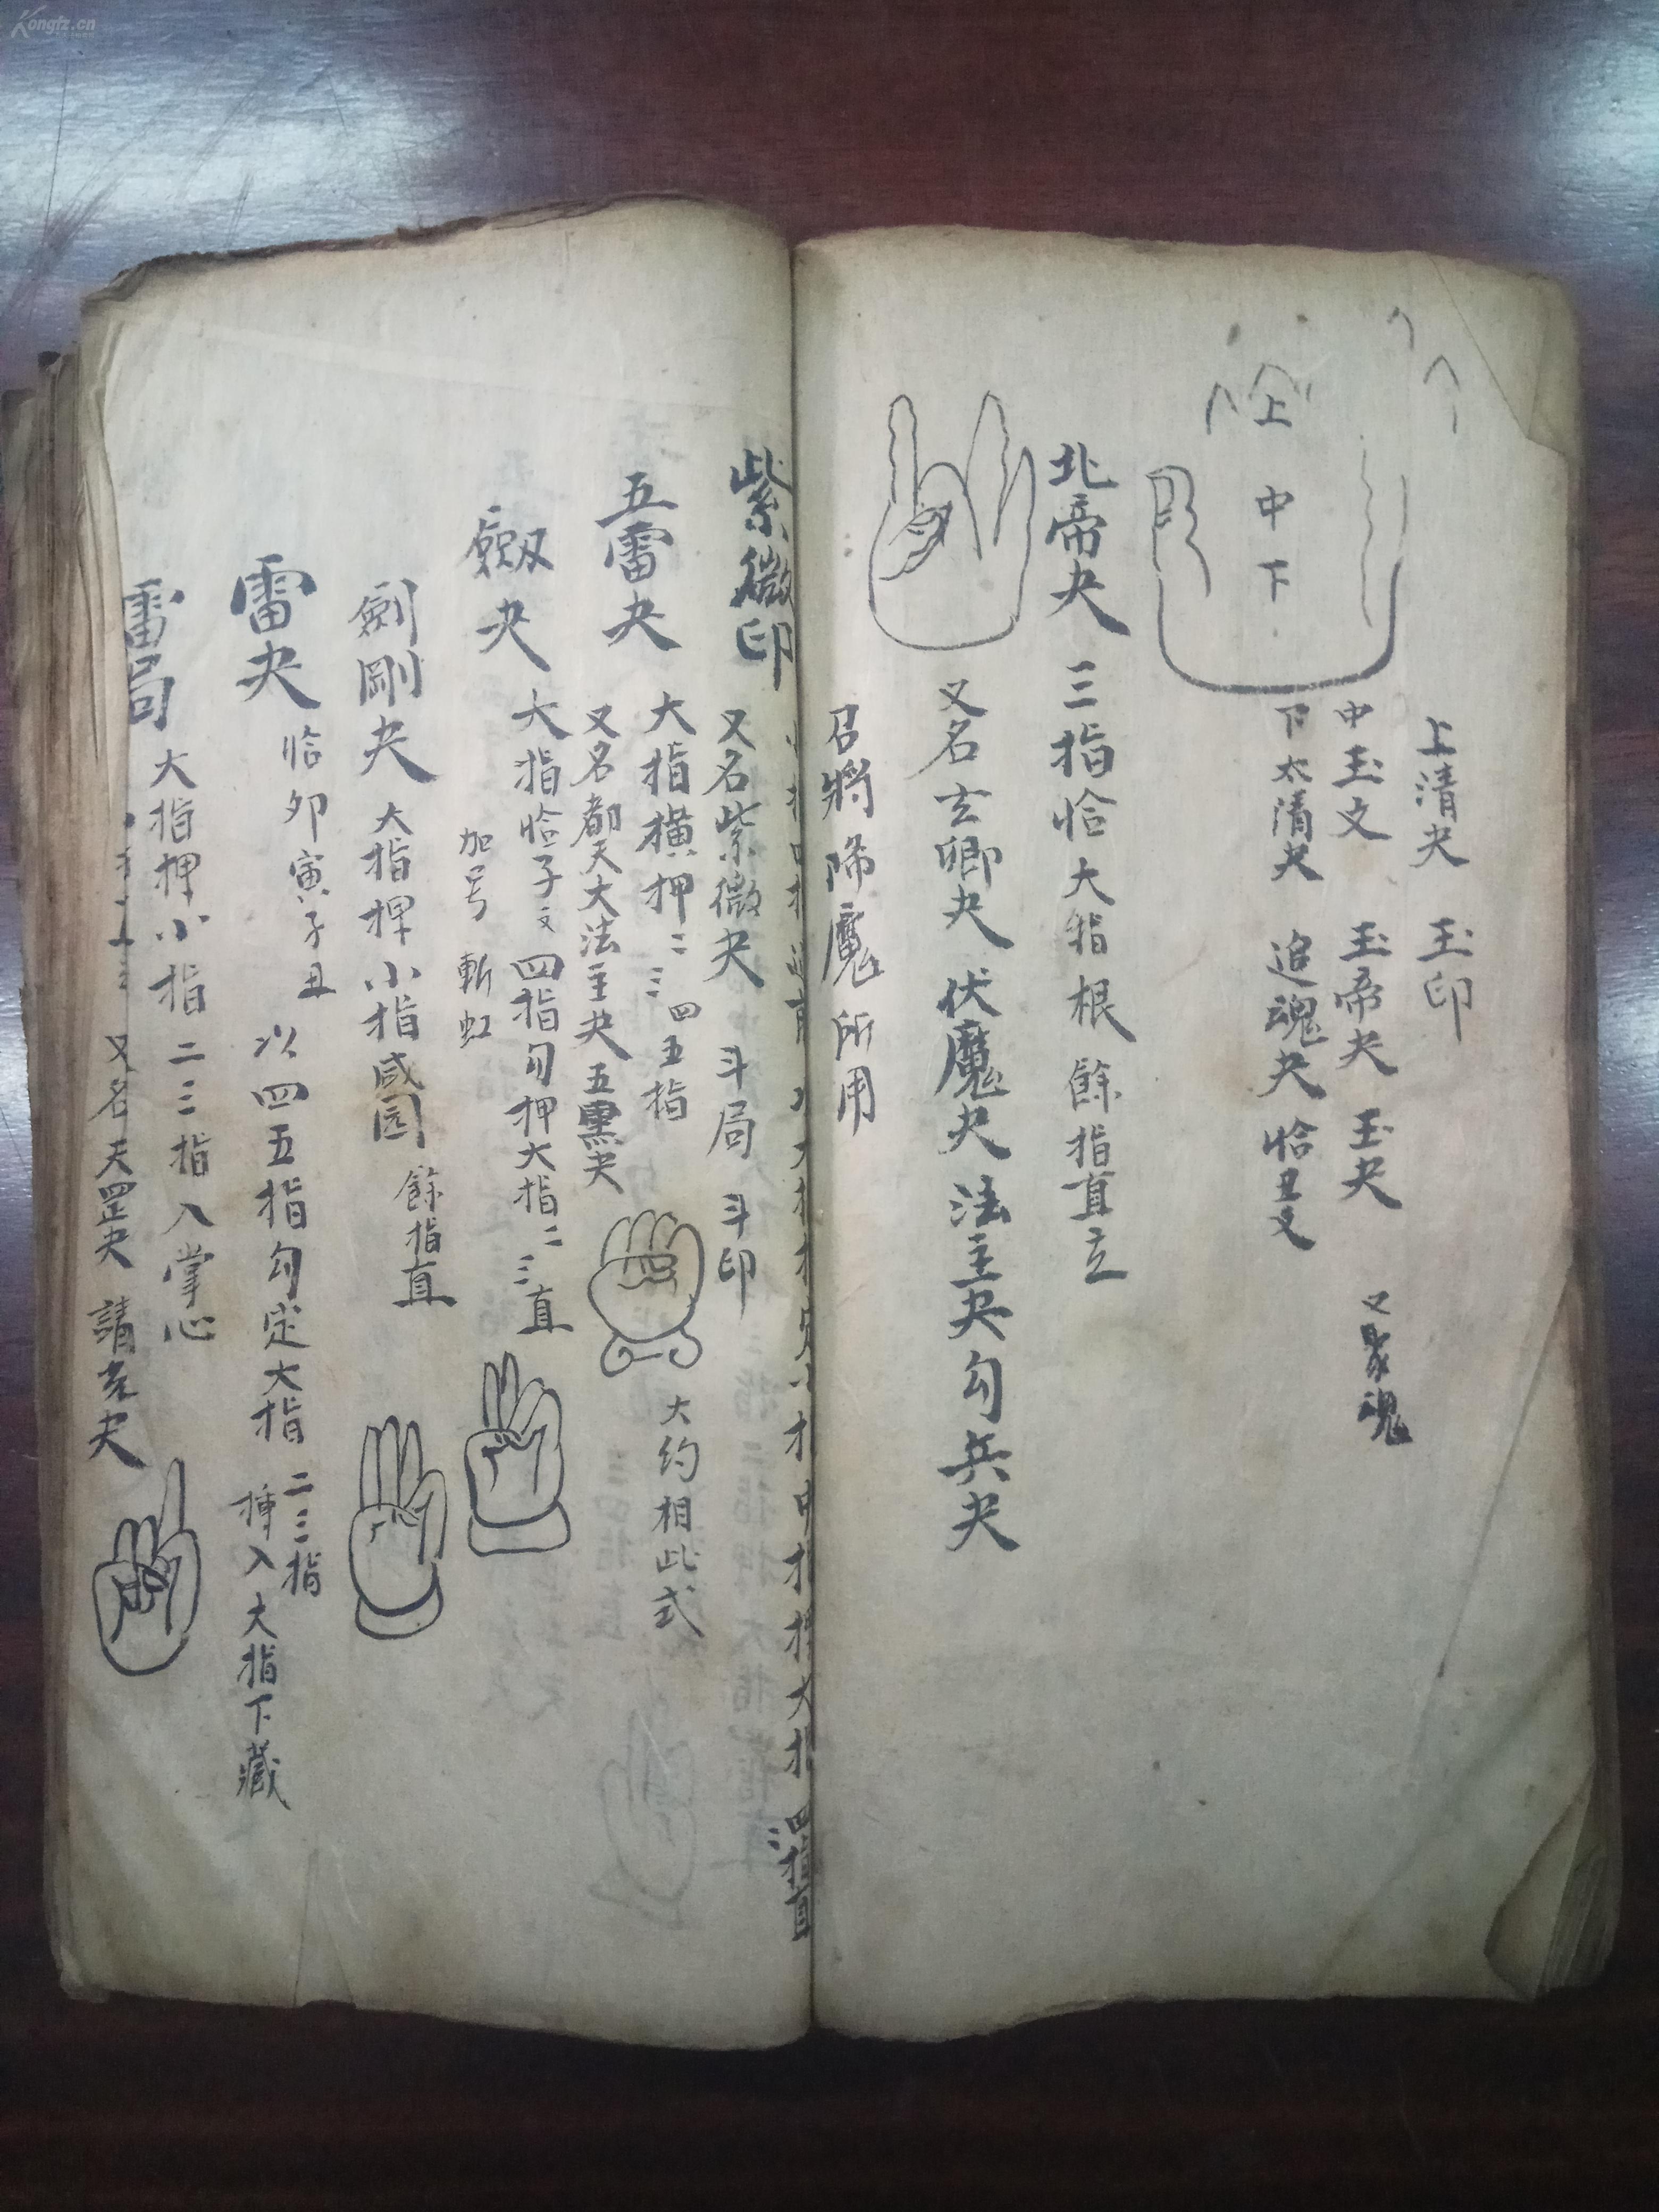 Kongfz.cn
上
中
下
上清夬 玉印
中玉文 玉帝夬 玉夬
下太清夬 追魂夬 恰丑文
又 魂
北帝夬 三指恰大指根 餘指直立
又名玄卿夬 伏魔夬 法主夬 勾兵夬
召將降魔所用
紫微印
四指直
又名紫微夬 斗局 斗印
五雷夬 大指橫押二三四五指
又名都天大法主夬 五雷夬
大約相此式
劔夬 大指恰子文 四指勾押大指 二三直
加号 斬虹
劍剛夬 大指押小指
餘指直
雷夬 恰卯寅子丑
以四五指勾定大指 二三指
挿入大指下藏
雷局 大指押小指 二三指入掌心
又名天罡夬 請 夬